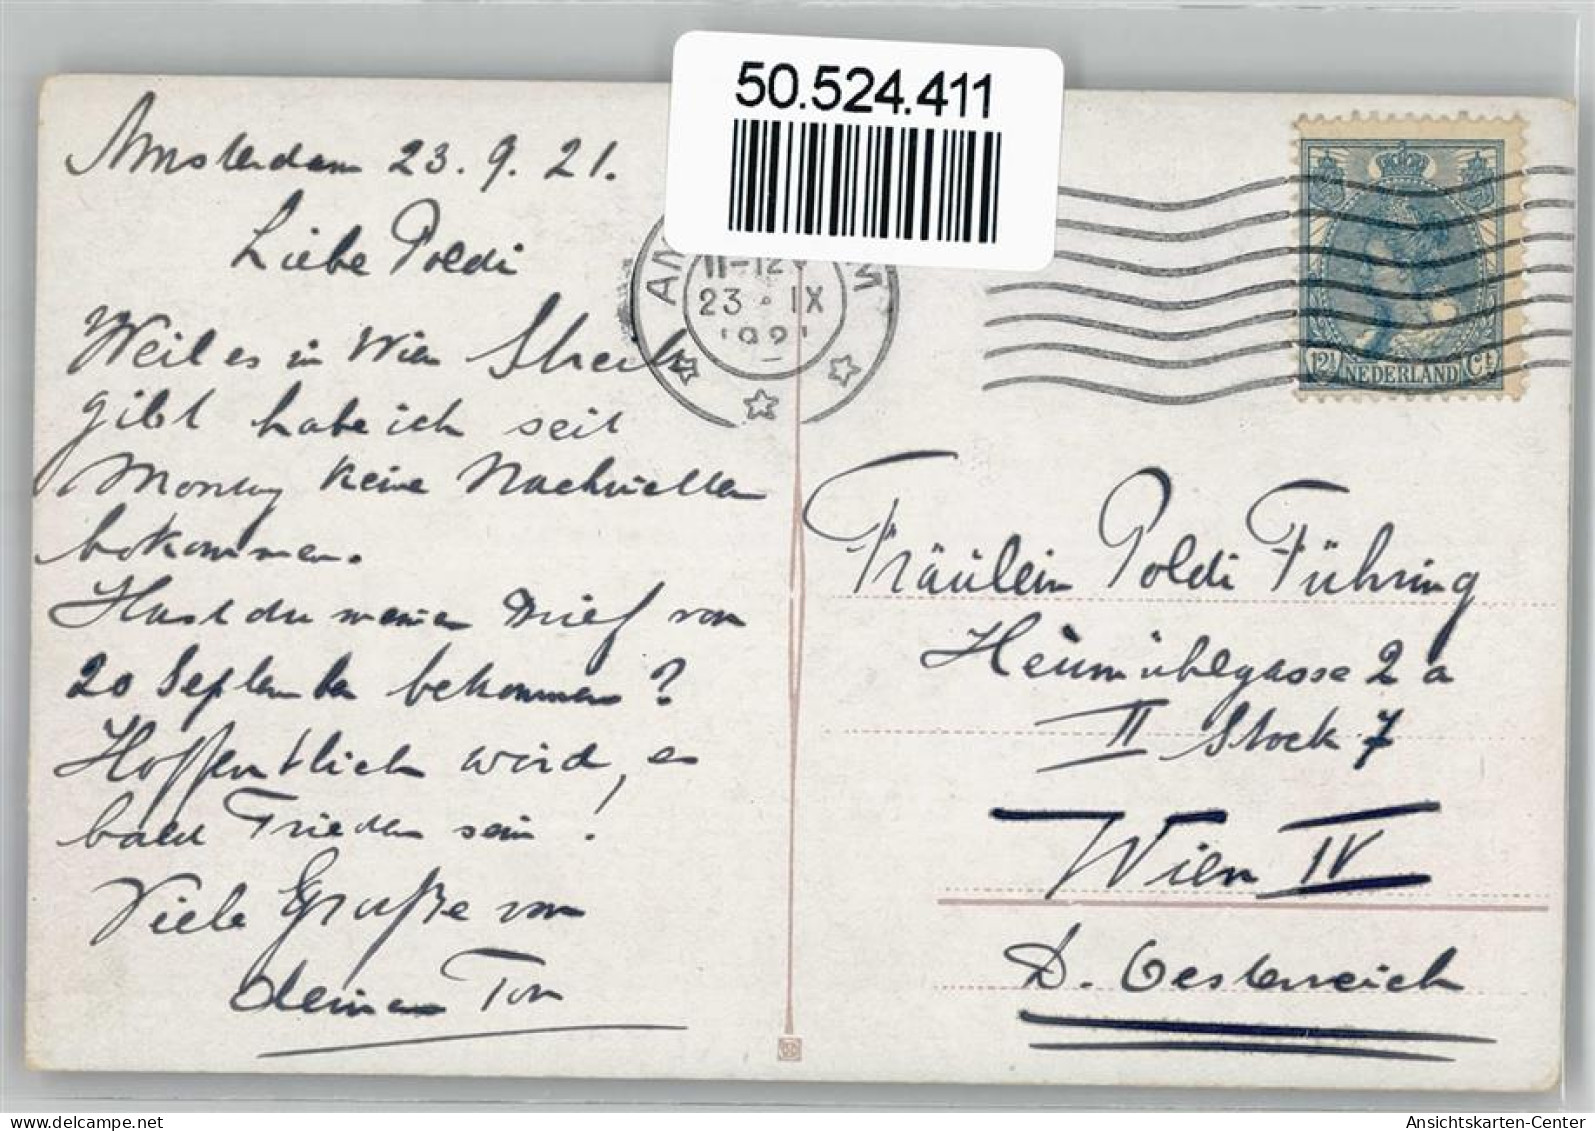 50.524.411
Amsterdam 23.9.21.
Liebe Poldi
Weil es in Wien Streik
gibt habe ich seit
Montag keine Nachrichten
bekommen.
Hast du meinen Brief von
20 September bekommen?
Hoffentlich wird, es
bald Frieden sein!
Viele Grüße von
deinem Ton
11-12
23 · IX
1921
12½ NEDERLAND Ct
Fräulein Poldi Führing
Heumühlgasse 2a
II Stock 7
Wien IV
D. Oesterreich
delcampe.net
Ansichtskarten-Center